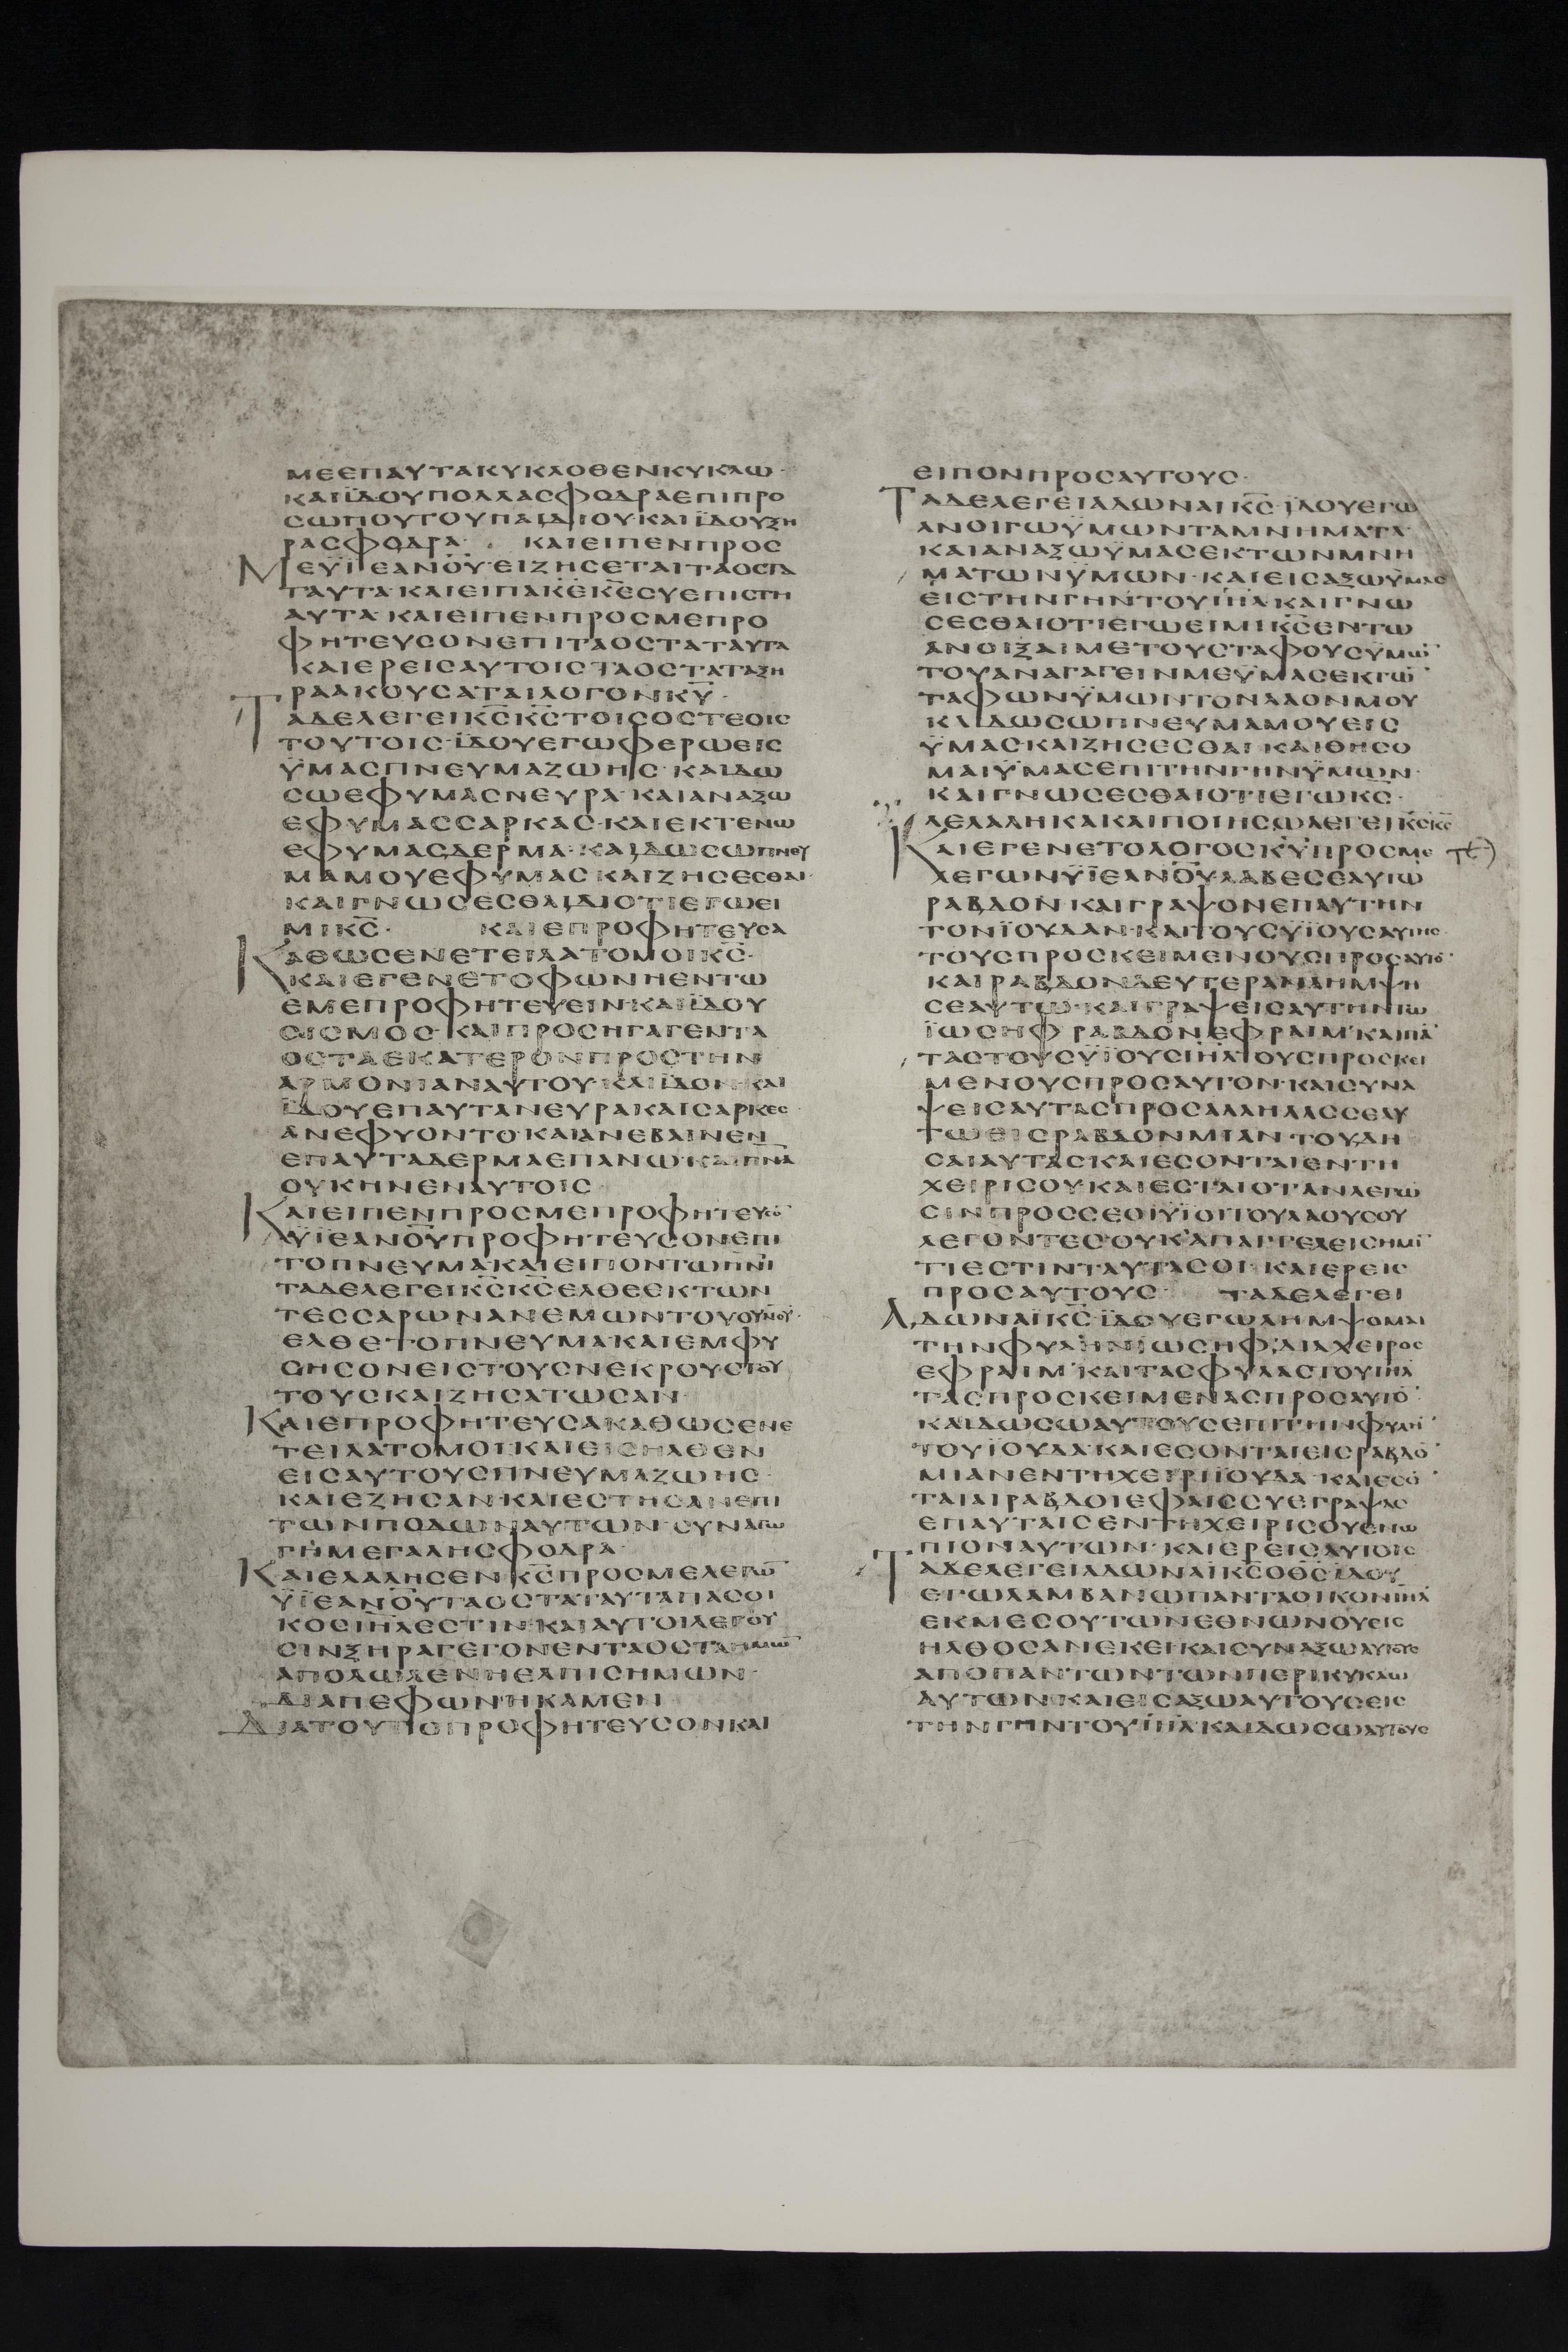 ΜΕΕΠΑΥΤΑΚΥΚΛΟΘΕΝΚΥΚΛΩ·
ΚΑΙΪΔΟΥΠΟΛΛΑΣΦΟΔΡΑΕΠΙΠΡΟ
ΣΩΠΟΥΤΟΥΠΑΙΔΙΟΥ·ΚΑΙΪΔΟΥΞΗ
ΡΑΣΦΟΔΡΑ· ΚΑΙΕΙΠΕΝΠΡΟΣ
ΜΕΥΪΕΑΝΟΥ·ΕΙΖΗΣΕΤΑΙΤΑΟΣΤΑ
ΤΑΥΤΑ·ΚΑΙΕΙΠΑΚ̅Ε̅Κ̅Ε̅ΣΥΕΠΙΣΤΗ
ΑΥΤΑ·ΚΑΙΕΙΠΕΝΠΡΟΣΜΕΠΡΟ
ΦΗΤΕΥΣΟΝΕΠΙΤΑΟΣΤΑΤΑΥΤΑ
ΚΑΙΕΡΕΙΣΑΥΤΟΙΣΤΑΟΣΤΑΤΑΞΗ
ΡΑΑΚΟΥΣΑΤΑΙΛΟΓΟΝΚ̅Υ̅·
ΤΑΔΕΛΕΓΕΙΚ̅Σ̅Κ̅Σ̅ΤΟΙΣΟΣΤΕΟΙΣ
ΤΟΥΤΟΙΣ·ΪΔΟΥΕΓΩΦΕΡΩΕΙΣ
ΫΜΑΣΠΝΕΥΜΑΖΩΗΣ·ΚΑΙΔΩ
ΣΩΕΦΥΜΑΣΝΕΥΡΑ·ΚΑΙΑΝΑΞΩ
ΕΦΥΜΑΣΣΑΡΚΑΣ·ΚΑΙΕΚΤΕΝΩ
ΕΦΥΜΑΣΔΕΡΜΑ·ΚΑΙΔΩΣΩΠΝΕΥ
ΜΑΜΟΥΕΦΥΜΑΣΚΑΙΖΗΣΕΣΘΑΙ·
ΚΑΙΓΝΩΣΕΣΘΑΙΔΙΟΤΙΕΓΩΕΙ
ΜΙΚ̅Σ̅· ΚΑΙΕΠΡΟΦΗΤΕΥΣΑ
ΚΑΘΩΣΕΝΕΤΕΙΛΑΤΟΜΟΙΚ̅Σ̅·
ΚΑΙΕΓΕΝΕΤΟΦΩΝΗΕΝΤΩ
ΕΜΕΠΡΟΦΗΤΕΥΕΙΝ·ΚΑΙΪΔΟΥ
ΣΙΣΜΟΣ·ΚΑΙΠΡΟΣΗΓΑΓΕΝΤΑ
ΟΣΤΑΕΚΑΤΕΡΟΝΠΡΟΣΤΗΝ
ΑΡΜΟΝΙΑΝΑΥΤΟΥ·ΚΑΙΪΔΟΝ·ΚΑΙ
ΪΔΟΥΕΠΑΥΤΑΝΕΥΡΑΚΑΙΣΑΡΚΕΣ
ΑΝΕΦΥΟΝΤΟ·ΚΑΙΑΝΕΒΑΙΝΕΝ
ΕΠΑΥΤΑΔΕΡΜΑΕΠΑΝΩ·ΚΑΙΠ̅Ν̅Α̅
ΟΥΚΗΝΕΝΑΥΤΟΙΣ
ΚΑΙΕΙΠΕΝΠΡΟΣΜΕΠΡΟΦΗΤΕΥΣΟ̅
ΥΪΕΑΝΟΥΠΡΟΦΗΤΕΥΣΟΝΕΠΙ
ΤΟΠΝΕΥΜΑΚΑΙΕΙΠΟΝΤΩΠ̅Ν̅Ι̅
ΤΑΔΕΛΕΓΕΙΚ̅Σ̅Κ̅Σ̅ΕΛΘΕΕΚΤΩΝ
ΤΕΣΣΑΡΩΝΑΝΕΜΩΝΤΟΥΟΥΝΟΥ·
ΕΛΘΕΤΟΠΝΕΥΜΑ·ΚΑΙΕΜΦΥ
ΣΗΣΟΝΕΙΣΤΟΥΣΝΕΚΡΟΥΣΤΟΥ
ΤΟΥΣΚΑΙΖΗΣΑΤΩΣΑΝ·
ΚΑΙΕΠΡΟΦΗΤΕΥΣΑΚΑΘΩΣΕΝΕ
ΤΕΙΛΑΤΟΜΟΙ·ΚΑΙΕΙΣΗΛΘΕΝ
ΕΙΣΑΥΤΟΥΣΠΝΕΥΜΑΖΩΗΣ·
ΚΑΙΕΖΗΣΑΝ·ΚΑΙΕΣΤΗΣΑΝΕΠΙ
ΤΩΝΠΟΔΩΝΑΥΤΩΝ·ΣΥΝΑΓΩ
ΓΗΜΕΓΑΛΗΣΦΟΔΡΑ·
ΚΑΙΕΛΑΛΗΣΕΝΚ̅Σ̅ΠΡΟΣΜΕΛΕΓΩ̅
ΥΪΕΑΝΟΥΤΑΟΣΤΑΤΑΥΤΑΠΑΣΟΙ
ΚΟΣΙ̅Η̅Λ̅ΕΣΤΙΝ·ΚΑΙΑΥΤΟΙΛΕΓΟΥ
ΣΙΝΞΗΡΑΓΕΓΟΝΕΝΤΑΟΣΤΑΗΜΩ̅
ΑΠΟΛΩΛΕΝΗΕΛΠΙΣΗΜΩΝ·
ΔΙΑΠΕΦΩΝΗΚΑΜΕΝ
ΔΙΑΤΟΥΤΟΠΡΟΦΗΤΕΥΣΟΝΚΑΙ
ΕΙΠΟΝΠΡΟΣΑΥΤΟΥΣ·
ΤΑΔΕΛΕΓΕΙΑΔΩΝΑΙΚ̅Σ̅·ΪΔΟΥΕΓΩ
ΑΝΟΙΓΩΫΜΩΝΤΑΜΝΗΜΑΤΑ·
ΚΑΙΑΝΑΞΩΫΜΑΣΕΚΤΩΝΜΝΗ
ΜΑΤΩΝΫΜΩΝ·ΚΑΙΕΙΣΑΞΩΫΜΑΣ
ΕΙΣΤΗΝΓΗΝΤΟΥΙ̅Η̅Λ̅·ΚΑΙΓΝΩ
ΣΕΣΘΑΙΟΤΙΕΓΩΕΙΜΙΚ̅Σ̅ΕΝΤΩ
ΑΝΟΙΞΑΙΜΕΤΟΥΣΤΑΦΟΥΣΥΜΩ̅·
ΤΟΥΑΝΑΓΑΓΕΙΝΜΕΫΜΑΣΕΚΤΩ̅
ΤΑΦΩΝΫΜΩΝΤΟΝΛΑΟΝΜΟΥ
ΚΑΙΔΩΣΩΠΝΕΥΜΑΜΟΥΕΙΣ
ΫΜΑΣΚΑΙΖΗΣΕΣΘΑΙ·ΚΑΙΘΗΣΟ
ΜΑΙΫΜΑΣΕΠΙΤΗΝΓΗΝΫΜΩΝ·
ΚΑΙΓΝΩΣΕΣΘΑΙΟΤΙΕΓΩΚ̅Σ̅·
ΛΕΛΑΛΗΚΑΚΑΙΠΟΙΗΣΩΛΕΓΕΙΚ̅Σ̅Κ̅Σ̅
ΚΑΙΕΓΕΝΕΤΟΛΟΓΟΣΚ̅Υ̅ΠΡΟΣΜΕ
ΛΕΓΩΝΥΪΕΑΝΟΥΛΑΒΕΣΕΑΥΤΩ
ΡΑΒΔΟΝ·ΚΑΙΓΡΑΨΟΝΕΠΑΥΤΗΝ
ΤΟΝΪΟΥΔΑΝ·ΚΑΙΤΟΥΣΥΪΟΥΣΑΥΤΟΥ·
ΤΟΥΣΠΡΟΣΚΕΙΜΕΝΟΥΣΠΡΟΣΑΥΤΟ̅·
ΚΑΙΡΑΒΔΟΝΔΕΥΤΕΡΑΝΛΗΜΨΗ
ΣΕΑΥΤΩ·ΚΑΙΓΡΑΨΕΙΣΑΥΤΗΝΤΩ
ΪΩΣΗΦ·ΡΑΒΔΟΝΕΦΡΑΙΜ·ΚΑΙΠΑ̅
ΤΑΣΤΟΥΣΥΪΟΥΣΙ̅Η̅Λ̅ΤΟΥΣΠΡΟΣΚΕΙ
ΜΕΝΟΥΣΠΡΟΣΑΥΤΟΝ·ΚΑΙΣΥΝΑ
ΨΕΙΣΑΥΤΑΣΠΡΟΣΑΛΛΗΛΑΣΣΕΑΥ
ΤΩΕΙΣΡΑΒΔΟΝΜΙΑΝ·ΤΟΥΔΗ
ΣΑΙΑΥΤΑΣ·ΚΑΙΕΣΟΝΤΑΙΕΝΤΗ
ΧΕΙΡΙΣΟΥ·ΚΑΙΕΣΤΑΙΟΤΑΝΛΕΓΩ
ΣΙΝΠΡΟΣΣΕΟΙΥΪΟΙΤΟΥΛΑΟΥΣΟΥ
ΛΕΓΟΝΤΕΣΟΥΚΑΠΑΓΓΕΛΕΙΣΗΜΙ̅
ΤΙΕΣΤΙΝΤΑΥΤΑΣΟΙ·ΚΑΙΕΡΕΙΣ
ΠΡΟΣΑΥΤΟΥΣ· ΤΑΔΕΛΕΓΕΙ
ΑΔΩΝΑΪΚ̅Σ̅·ΪΔΟΥΕΓΩΛΗΜΨΟΜΑΙ
ΤΗΝΦΥΛΗΝΙΩΣΗΦ·ΔΙΑΧΕΙΡΟΣ
ΕΦΡΑΙΜ·ΚΑΙΤΑΣΦΥΛΑΣΤΟΥΙ̅Η̅Λ̅
ΤΑΣΠΡΟΣΚΕΙΜΕΝΑΣΠΡΟΣΑΥΤΟ̅·
ΚΑΙΔΩΣΩΑΥΤΟΥΣΕΠΙΤΗΝΦΥΛΗ̅·
ΤΟΥΪΟΥΔΑ·ΚΑΙΕΣΟΝΤΑΙΕΙΣΡΑΒΔΟ̅·
ΜΙΑΝΕΝΤΗΧΕΙΡΙΪΟΥΔΑ·ΚΑΙΕΣΟ̅·
ΤΑΙΑΙΡΑΒΔΟΙΕΦΑΙΣΣΥΕΓΡΑΨΑΣ
ΕΠΑΥΤΑΙΣΕΝΤΗΧΕΙΡΙΣΟΥΕΝΩ
ΠΙΟΝΑΥΤΩΝ·ΚΑΙΕΡΕΙΣΑΥΤΟΙΣ
ΤΑΔΕΛΕΓΕΙΑΔΩΝΑΪΚ̅Σ̅Ο̅Θ̅Σ̅ΪΔΟΥ
ΕΓΩΛΑΜΒΑΝΩΠΑΝΤΑΟΙΚΟΝΙ̅Η̅Λ̅
ΕΚΜΕΣΟΥΤΩΝΕΘΝΩΝΟΥΕΙΣ
ΗΛΘΟΣΑΝΕΚΕΙ·ΚΑΙΣΥΝΑΞΩΑΥΤΟΥΣ
ΑΠΟΠΑΝΤΩΝΤΩΝΠΕΡΙΚΥΚΛΩ
ΑΥΤΩΝ·ΚΑΙΕΙΣΑΞΩΑΥΤΟΥΣΕΙΣ
ΤΗΝΓΗΝΤΟΥΙ̅Η̅Λ̅·ΚΑΙΔΩΣΩΑΥΤΟΥΣ